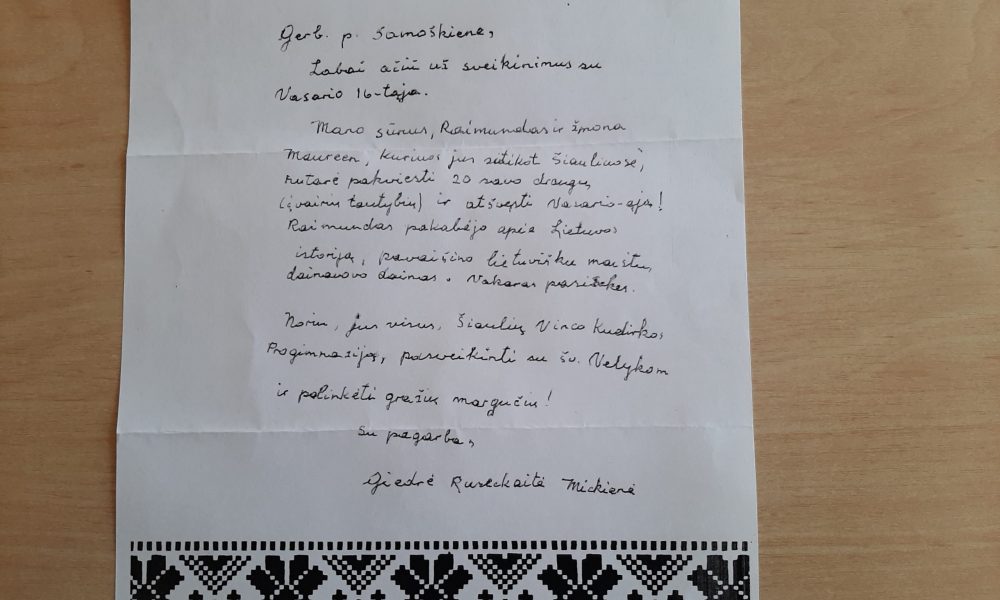 Gerb. p. Šamoškiene,
Labai ačiū už sveikinimus su
Vasario 16-tąja.
Mano sūnus, Raimundas ir žmona
Maureen, kuriuos jūs sutikot Šiauliuose,
nutarė pakviesti 20 savo draugų
(įvairių tautybių) ir atšvęsti Vasario-ąją!
Raimundas pakalbėjo apie Lietuvos
istoriją, pavaišino lietuvišku maistu,
dainavovo dainas. Vakaras pasisekęs.
Noriu, jus visus, Šiaulių Vinco Kudirkos
Progimnaziją, pasveikinti su šv. Velykom
ir palinkėti gražių margučių!
Su pagarba,
Giedrė Ruseckaitė Mickienė